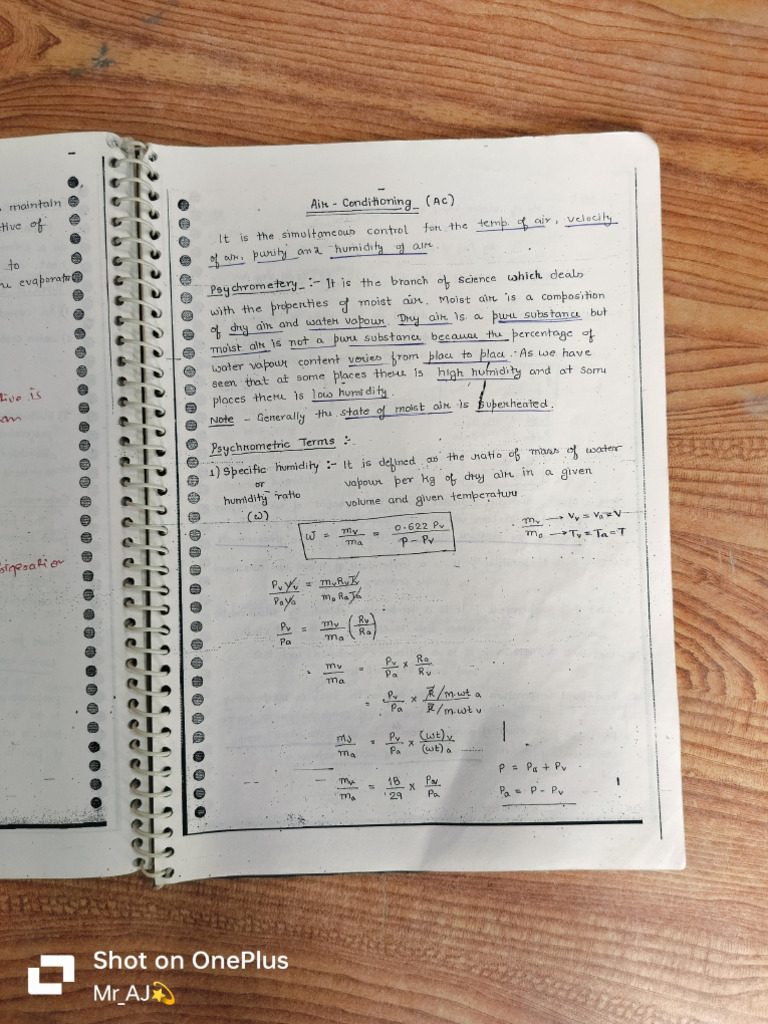 maintain
tive of
to
evaporator
tive is
Air - Conditioning (AC)
It is the simultaneous control for the temp. of air, velocity
of air, purity and humidity of air.
Psychrometery :- It is the branch of science which deals
with the properties of moist air. Moist air is a composition
of dry air and water vapour. Dry air is a pure substance but
moist air is not a pure substance because the percentage of
water vapour content varies from place to place. As we have
seen that at some places there is high humidity and at some
places there is low humidity.
Note - Generally the state of moist air is superheated.
Psychrometric Terms :-
1) Specific humidity :- It is defined as the ratio of mass of water
or vapour per kg of dry air in a given
humidity ratio volume and given temperature
(ω)
ω = mv/ma = 0.622 Pv/P - Pv
mv/ma → Vv = Va = V
→ Tv = Ta = T
Pv Vv/Pa Va = mv Rv T/ma Ra Ta
Pv/Pa = mv/ma (Rv/Ra)
mv/ma = Pv/Pa × Ra/Rv
= Pv/Pa × R̄/m.wt a/R̄/m.wt v
mv/ma = Pv/Pa × (wt)v/(wt)a
P = Pa + Pv
mv/ma = 18/29 × Pv/Pa
Pa = P - Pv
Shot on OnePlus
Mr_AJ💫